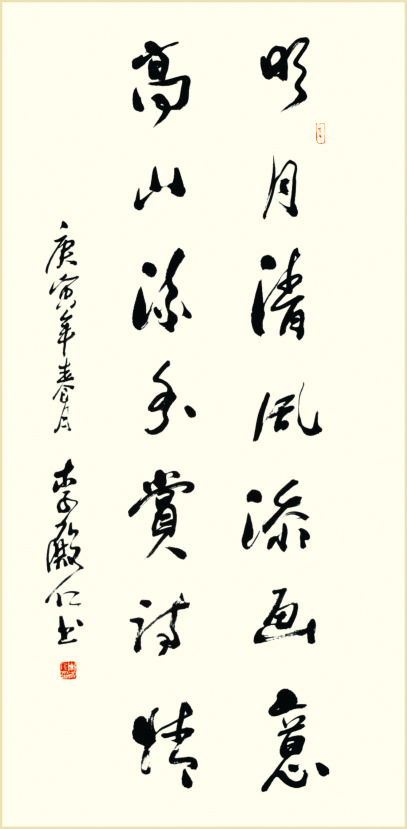 明月清风添画意
高山流水赏诗情
庚寅年春月 李殿仁书